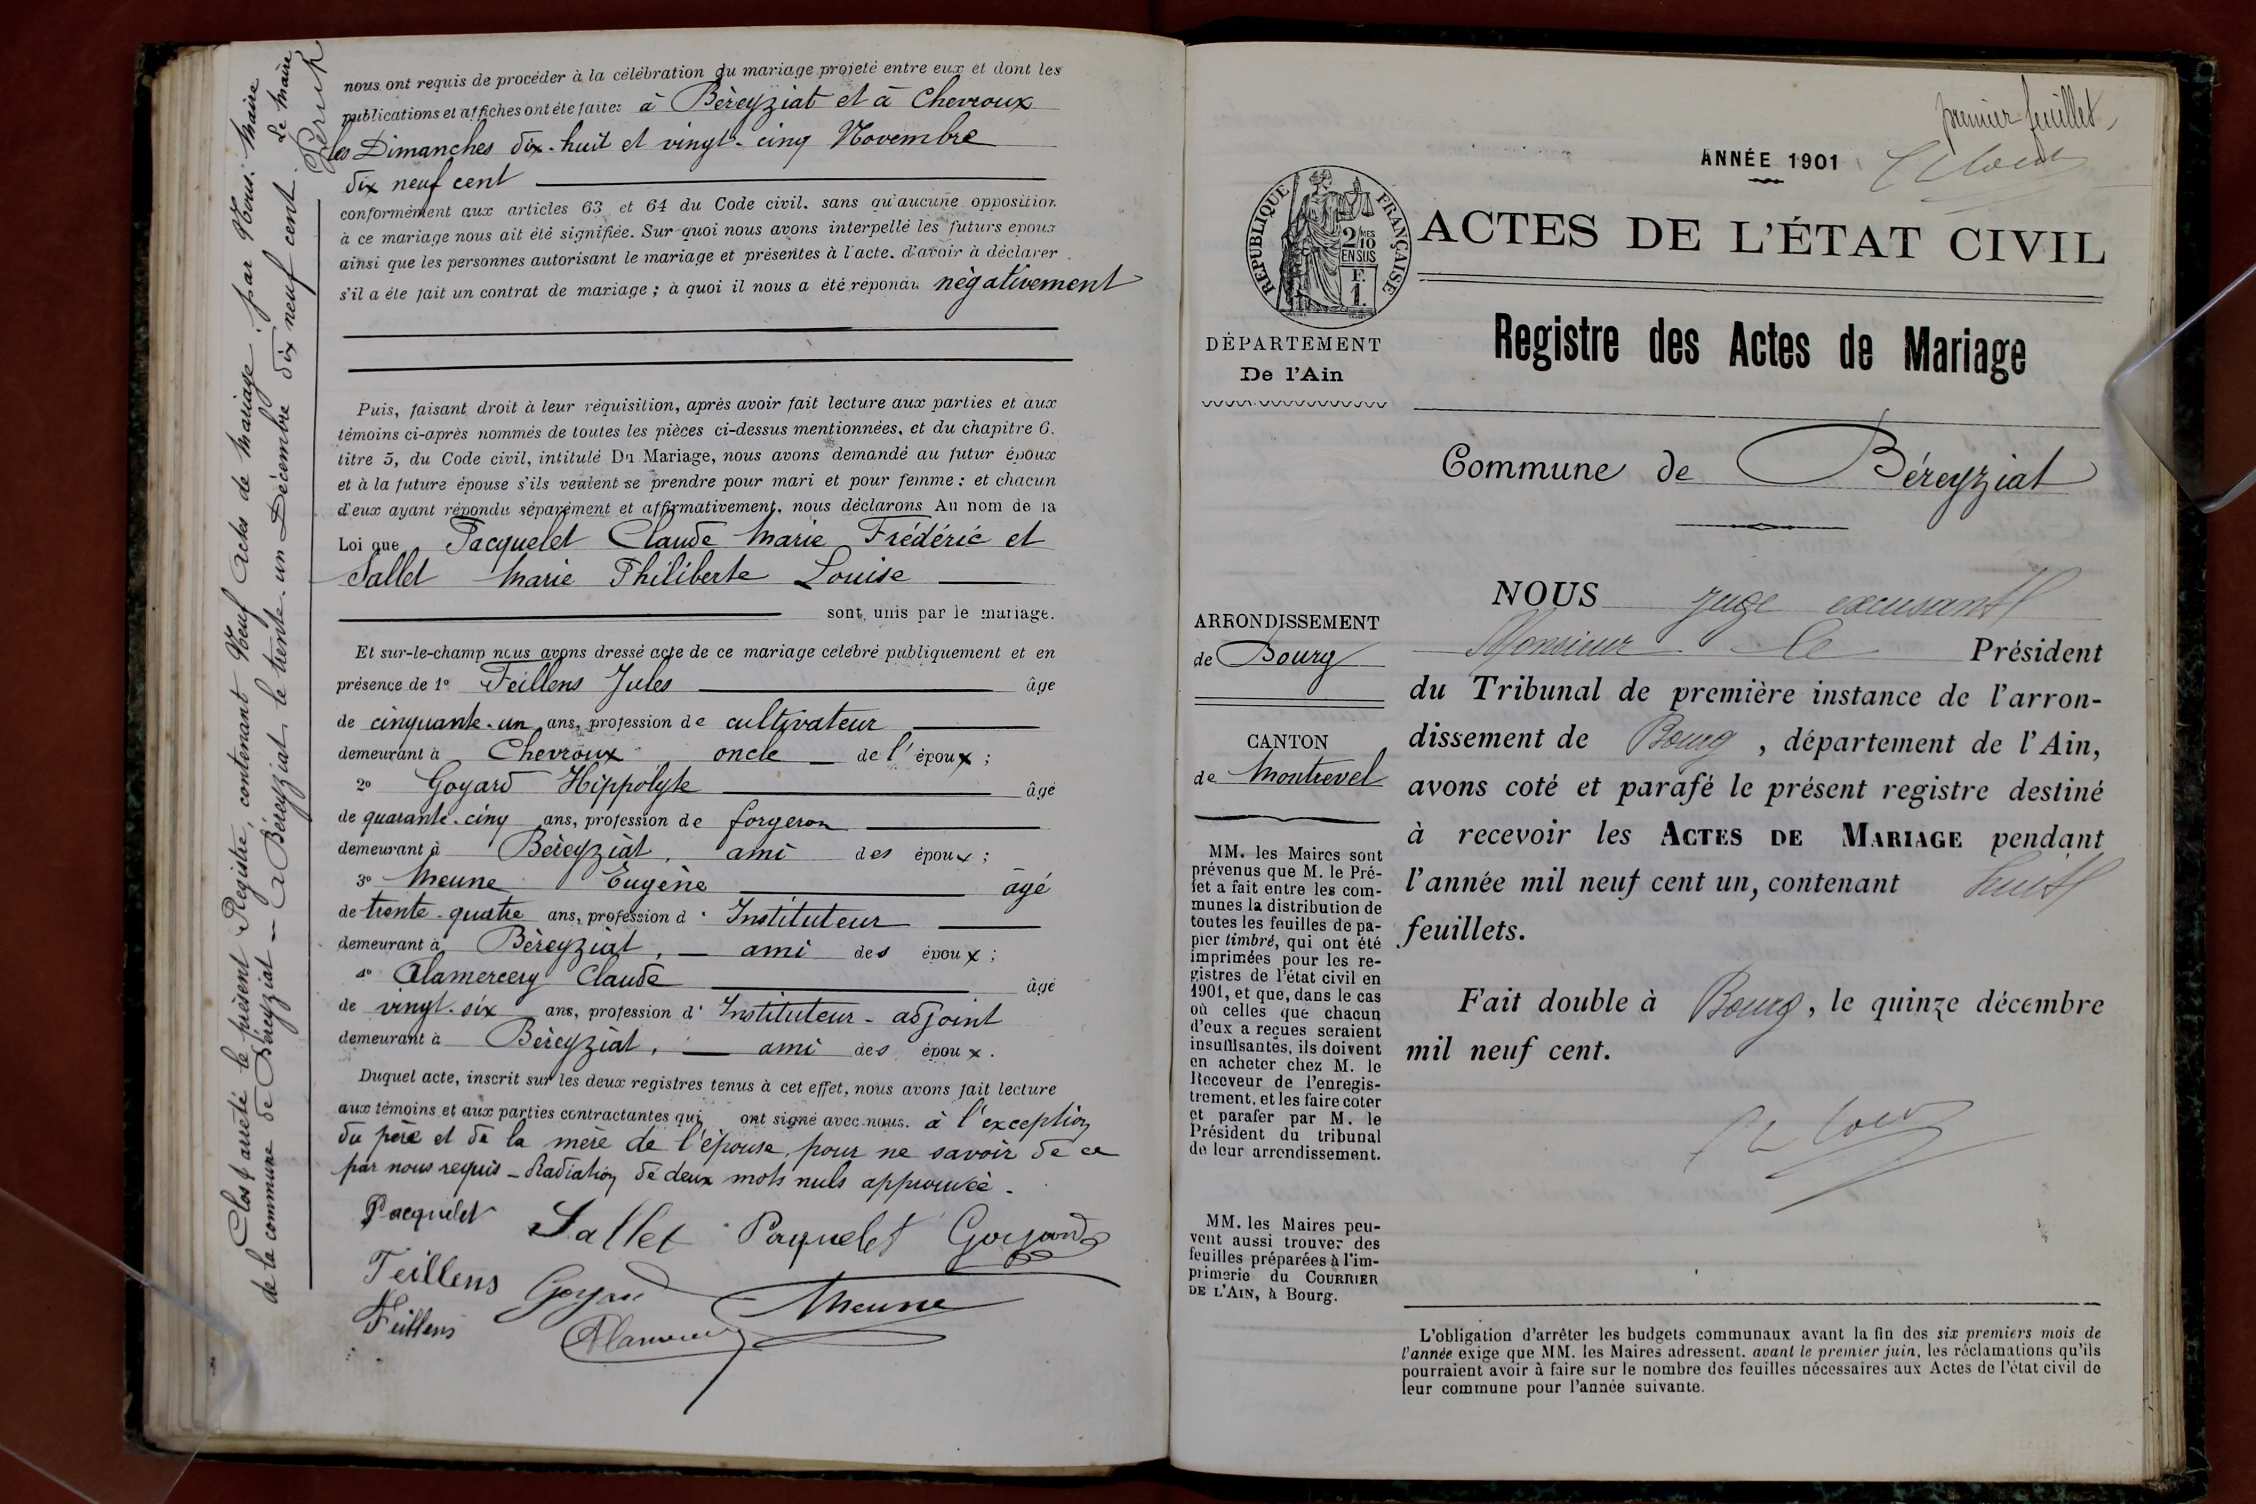 nous ont requis de procéder à la célébration du mariage projeté entre eux et dont les
publications et affiches ont été faites à Béreyziat et à Chevroux
les Dimanches dix-huit et vingt-cinq Novembre
dix neuf cent
conformément aux articles 63 et 64 du Code civil, sans qu'aucune opposition
à ce mariage nous ait été signifiée. Sur quoi nous avons interpellé les futurs époux
ainsi que les personnes autorisant le mariage et présentes à l'acte, d'avoir à déclarer
s'il a été fait un contrat de mariage ; à quoi il nous a été répondu négativement
Puis, faisant droit à leur réquisition, après avoir fait lecture aux parties et aux
témoins ci-après nommés de toutes les pièces ci-dessus mentionnées, et du chapitre 6.
titre 5, du Code civil, intitulé Du Mariage, nous avons demandé au futur époux
et à la future épouse s'ils veulent se prendre pour mari et pour femme : et chacun
d'eux ayant répondu séparément et affirmativement, nous déclarons Au nom de la
Loi que Pacquelet Claude Marie Frédéric et
Sallet Marie Philiberte Louise
sont unis par le mariage.
Et sur-le-champ nous avons dressé acte de ce mariage célébré publiquement et en
présence de 1º Feillens Jules âgé
de cinquante-un ans, profession de cultivateur
demeurant à Chevroux oncle de l'époux ;
2º Goyard Hippolyte âgé
de quarante-cinq ans, profession de forgeron
demeurant à Béreyziat, ami des époux ;
3º Meune Eugène âgé
de trente-quatre ans, profession d' Instituteur
demeurant à Béreyziat, ami des époux ;
4º Alamercery Claude âgé
de vingt-six ans, profession d' Instituteur-adjoint
demeurant à Béreyziat, ami des époux.
Duquel acte, inscrit sur les deux registres tenus à cet effet, nous avons fait lecture
aux témoins et aux parties contractantes qui ont signé avec nous. à l'exception
du père et de la mère de l'épouse, pour ne savoir de ce
par nous requis - Radiation de deux mots nuls approuvée -
Pacquelet Sallet Paquelet Goyard
Feillens Goyard Meune
Feillens Alamercery
Clos et arrêté le présent Registre, contenant Neuf Actes de Mariage, par Nous. Maire
de la commune de Béreyziat - A Béreyziat le trente-un Décembre dix neuf cent. Le Maire
premier feuillet
ANNÉE 1901
RÉPUBLIQUE FRANÇAISE
2/10 MES
EN SUS
F.
1.
ACTES DE L'ÉTAT CIVIL
DÉPARTEMENT
De l'Ain
Registre des Actes de Mariage
Commune de Béreyziat
ARRONDISSEMENT
de Bourg
CANTON
de Montrevel
MM. les Maires sont
prévenus que M. le Pré-
fet a fait entre les com-
munes la distribution de
toutes les feuilles de pa-
pier timbré, qui ont été
imprimées pour les re-
gistres de l'état civil en
1901, et que, dans le cas
où celles que chacun
d'eux a reçues seraient
insuffisantes, ils doivent
en acheter chez M. le
Receveur de l'enregis-
trement, et les faire coter
et parafer par M. le
Président du tribunal
de leur arrondissement.
MM. les Maires peu-
vent aussi trouver des
feuilles préparées à l'im-
primerie du COURRIER
DE L'AIN, à Bourg.
NOUS juge excusant
Monsieur le Président
du Tribunal de première instance de l'arron-
dissement de Bourg, département de l'Ain,
avons coté et parafé le présent registre destiné
à recevoir les ACTES DE MARIAGE pendant
l'année mil neuf cent un, contenant huit
feuillets.
Fait double à Bourg, le quinze décembre
mil neuf cent.
L'obligation d'arrêter les budgets communaux avant la fin des six premiers mois de
l'année exige que MM. les Maires adressent, avant le premier juin, les réclamations qu'ils
pourraient avoir à faire sur le nombre des feuilles nécessaires aux Actes de l'état civil de
leur commune pour l'année suivante.